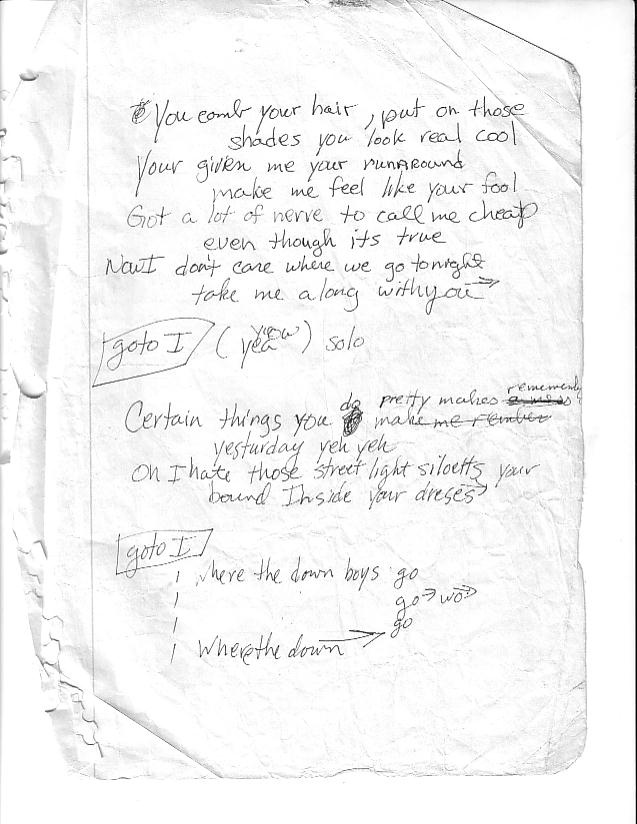 You comb your hair, put on those
shades you look real cool
Your given me your runaround
make me feel like your fool
Got a lot of nerve to call me cheap
even though its true
Now I don't care where we go tonight
take me along with you
goto I (yea yeow) solo
Certain things you do pretty makes a mess rememember
make me rember
yesturday yeh yeh
Oh I hate those street light siloetts your
bound Inside your dreses
goto I
Where the down boys go
go wo
go
Where the down